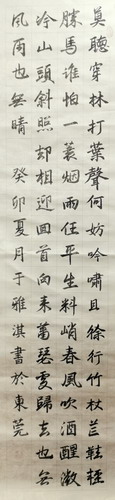 莫聽穿林打葉聲何妨吟嘯且徐行竹杖芒鞋輕
勝馬誰怕一蓑烟雨任平生料峭春風吹酒醒微
冷山頭斜照却相迎回首向来蕭瑟處歸去也無
風雨也無晴 癸卯夏月于雅淇書於東莞